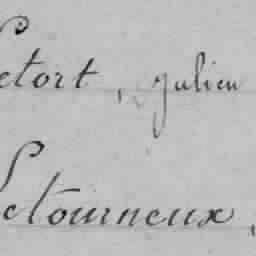 Letort, Julien
Letourneux,